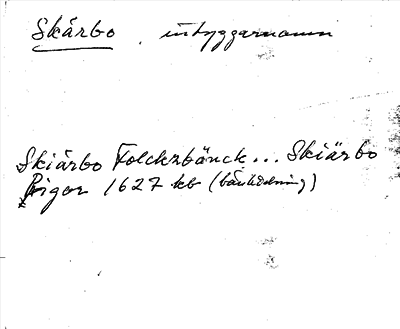 Skärbo, inbyggarnamn
Skiärbo Folckzbänck... Skiärbo
Pigor 1627 kb (bänkordning)